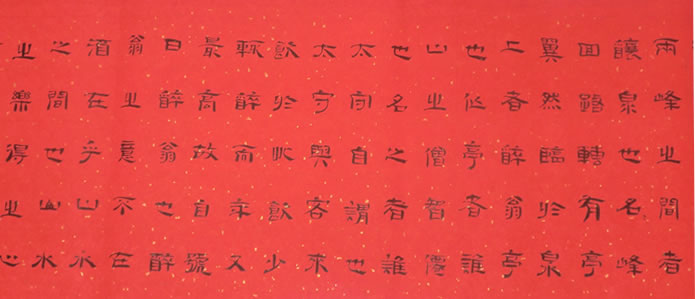 兩峰之間者
釀泉也名峰
回路轉有亭
翼然臨於泉
上者醉翁亭
也作亭者誰
山之僧智僊
也名之者誰
太守自謂也
太守與客來
飲於此飲少
輒醉而年又
最高故自號
曰醉翁也醉
翁之意不在
酒在乎山水
之間也山水
之樂得之心